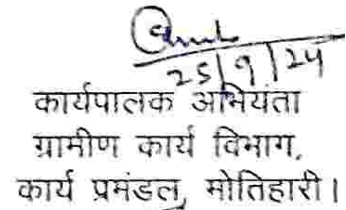 25/9/24
कार्यपालक अभियंता
ग्रामीण कार्य विभाग,
कार्य प्रमंडल, मोतिहारी।